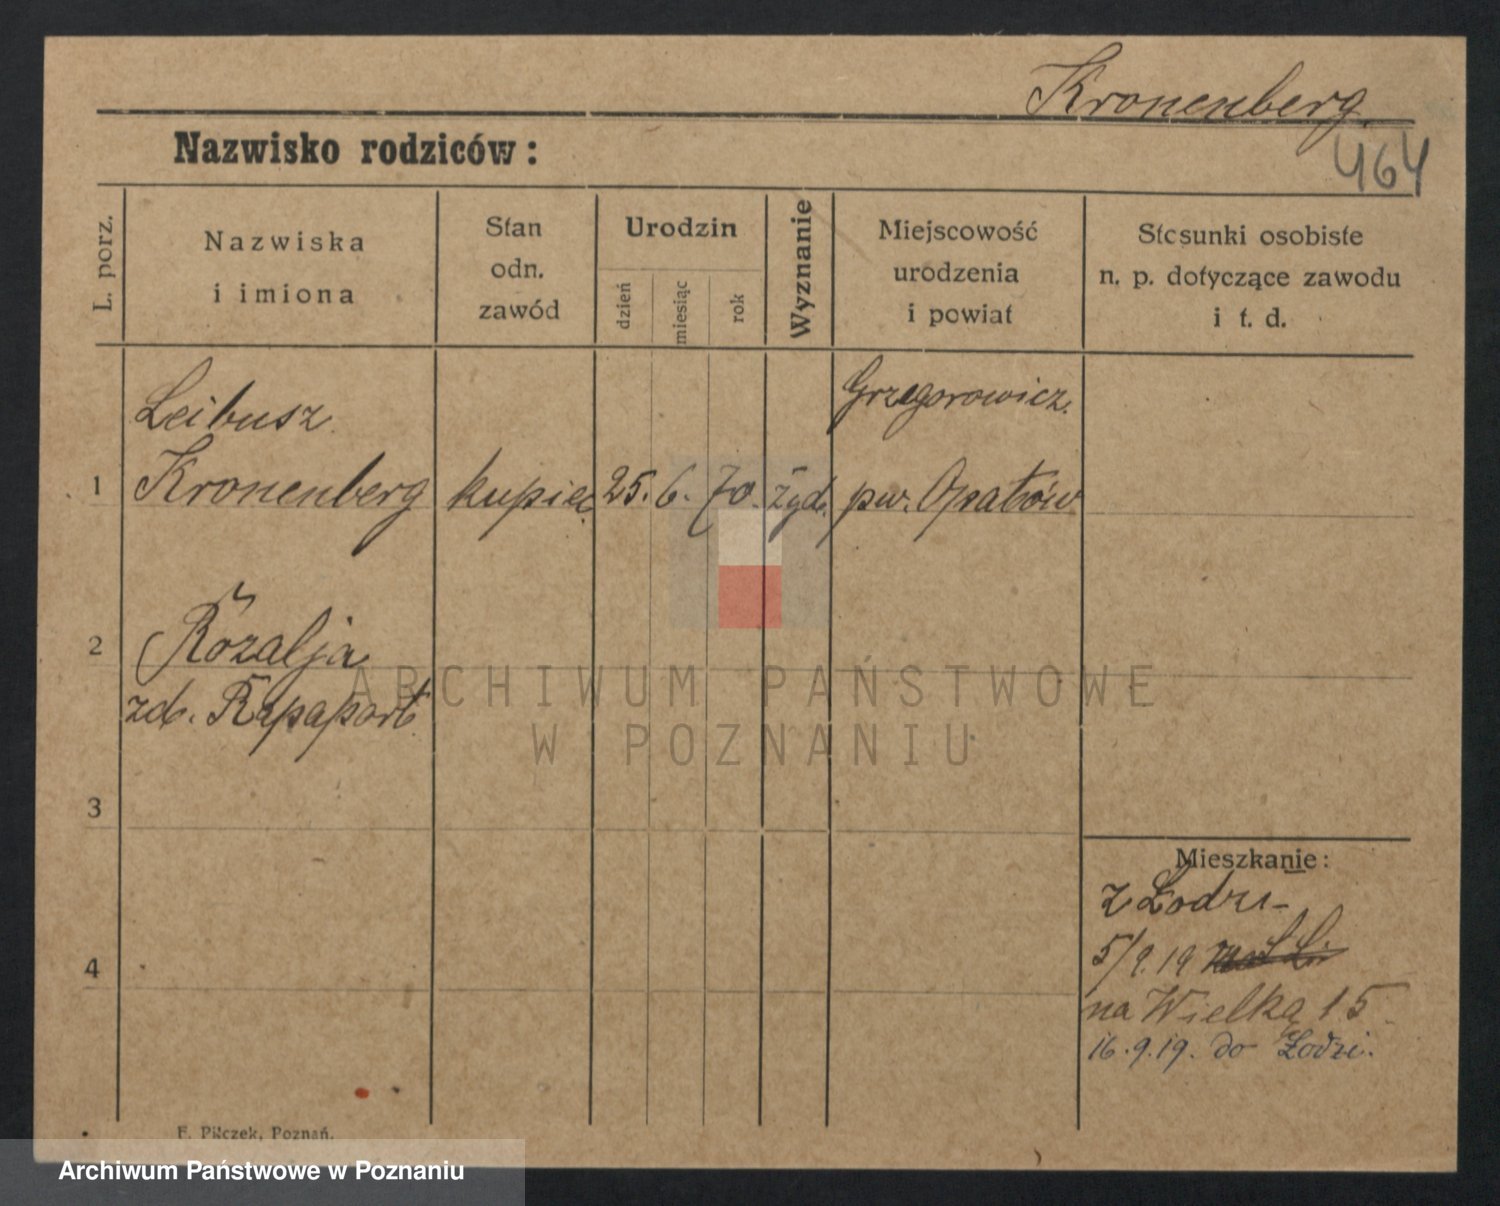 Kronenberg
464
Nazwisko rodziców:
L. porz.
Nazwiska
i imiona
Stan
odn.
zawód
Urodzin
dzień
miesiąc
rok
Wyznanie
Miejscowość
urodzenia
i powiat
Stosunki osobiste
n. p. dotyczące zawodu
i t. d.
Leibusz
Grzegorowicz.
1 Kronenberg kupiec 25. 6. 70. żyd. pw. Opatów
2 Rozalja
zd. Rapaport
3
4
Mieszkanie:
z Łodzi
5/9.19
na Wielką 15
16.9.19. do Łodzi.
F. Pilczek, Poznań.
ARCHIWUM PAŃSTWOWE
W POZNANIU
Archiwum Państwowe w Poznaniu